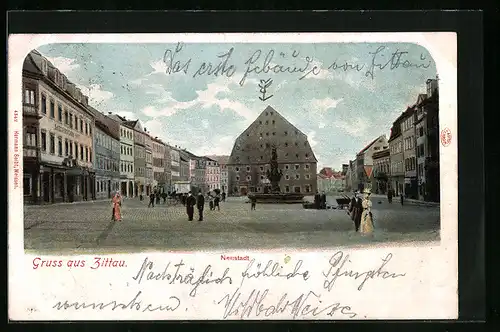 Das erste Gebäude von Zittau
4849 Hermann Seibt, Meissen.
Neustadt
Gruss aus Zittau.
Nachträglich fröhliche Pfingsten
wünscht